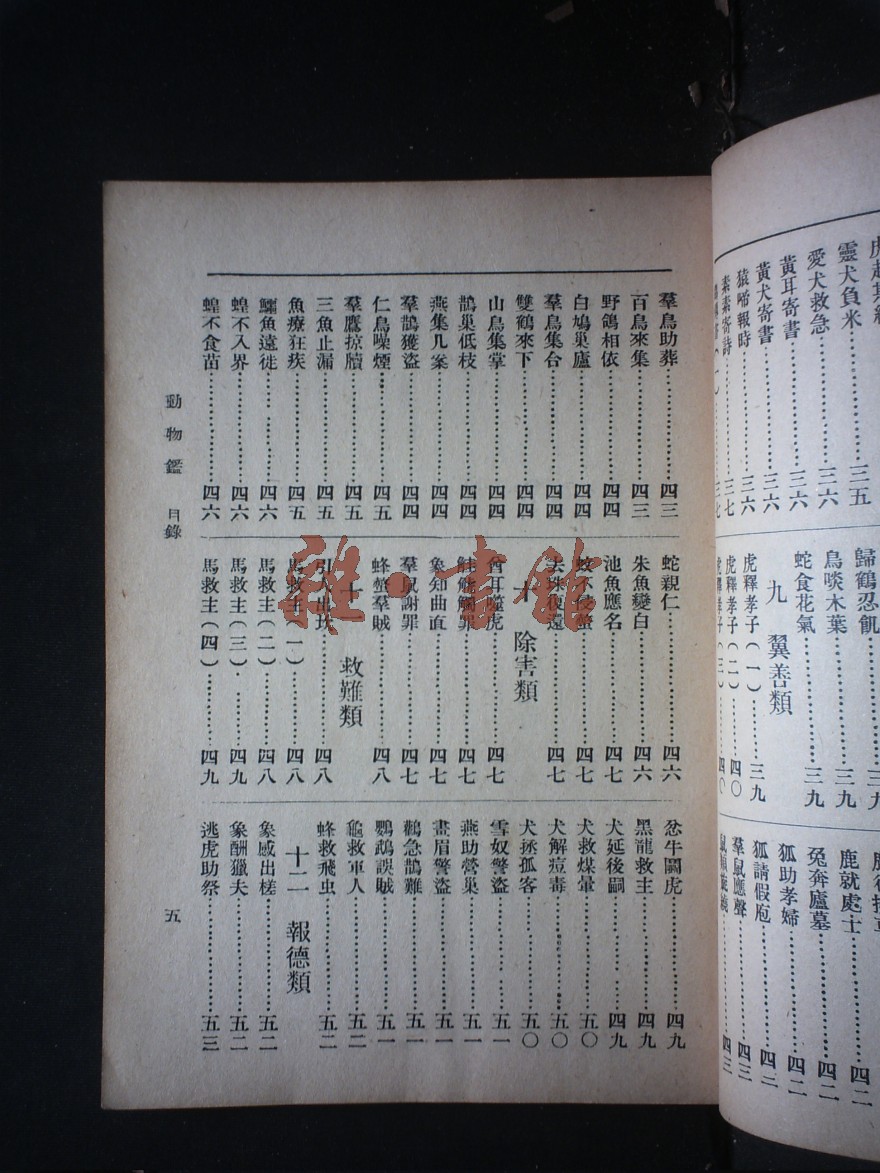 靈犬負米……三五
愛犬救急……三六
黃耳寄書……三六
黃犬寄書……三六
猿啼報時……三六
素素寄詩……三七
歸鶴忍飢……三九
鳥啖木葉……三九
蛇食花氣……三九
九 翼善類
虎釋孝子（一）……三九
虎釋孝子（二）……四〇
虎釋孝子（三）……四〇
鹿就處士……四二
兔奔廬墓……四二
狐助孝婦……四二
狐請假庖
羣鼠應聲……四三
羣鳥助葬……四三
百鳥來集……四三
野鴿相依……四四
白鳩巢廬……四四
羣鳥集台……四四
雙鶴來下……四四
山鳥集掌……四四
鵲巢低枝……四四
燕集几案……四四
羣鵲獲盜……四四
仁鳥噪煙……四五
羣鷹掠牘……四五
三魚止漏……四五
魚療狂疾……四五
鱷魚遠徙……四六
蝗不入界……四六
蝗不食苗……四六
蛇親仁……四六
朱魚變白……四六
池魚應名……四七
蚊不侵螫……四七
去珠復還……四七
十 除害類
酋耳噬虎……四七
觟䚦觸罪……四七
象知曲直……四七
羣鼠謝罪……四七
蜂螫羣賊……四八
十一 救難類
引人出坎……四八
馬救主（一）……四八
馬救主（二）……四八
馬救主（三）……四九
馬救主（四）……四九
忿牛鬬虎……四九
黑龍救主……四九
犬延後嗣……四九
犬救煤暈……五〇
犬解痘毒……五〇
犬拯孤客……五〇
雪奴警盜……五一
燕助營巢……五一
畫眉警盜……五一
鸛急鵲難……五一
鸚鵡誤賊……五一
龜救軍人……五二
蜂救飛虫……五二
十二 報德類
象感出槎……五二
象酬獵夫……五二
逃虎助祭……五三
動物鑑 目錄
五
雜·書館